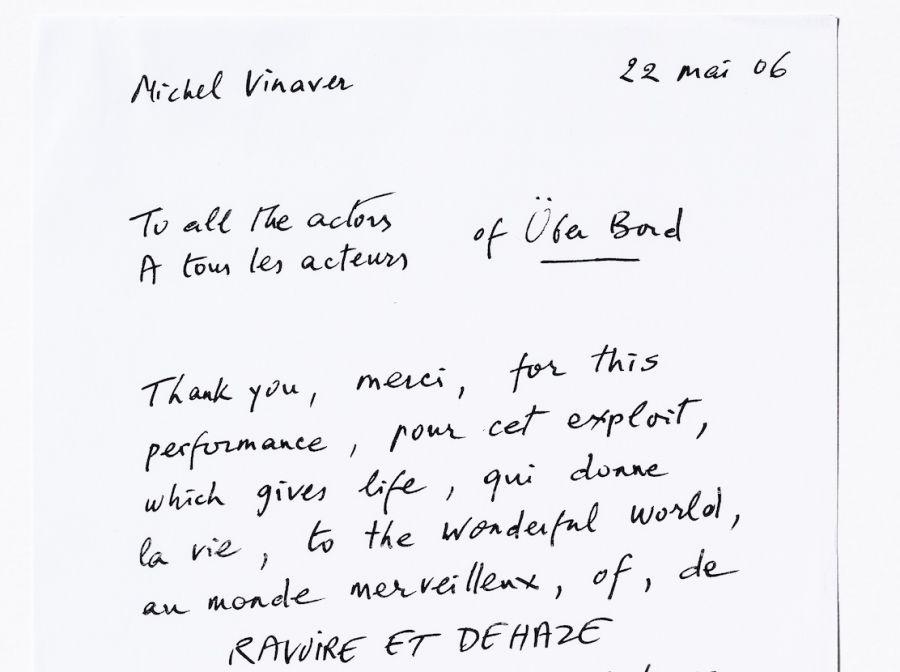 Michel Vinaver
22 mai 06
To all the actors
A tous les acteurs
of Über Bord
Thank you, merci, for this
performance, pour cet exploit,
which gives life, qui donne
la vie, to the wonderful world,
au monde merveilleux, of, de
RAVOIRE ET DEHAZE